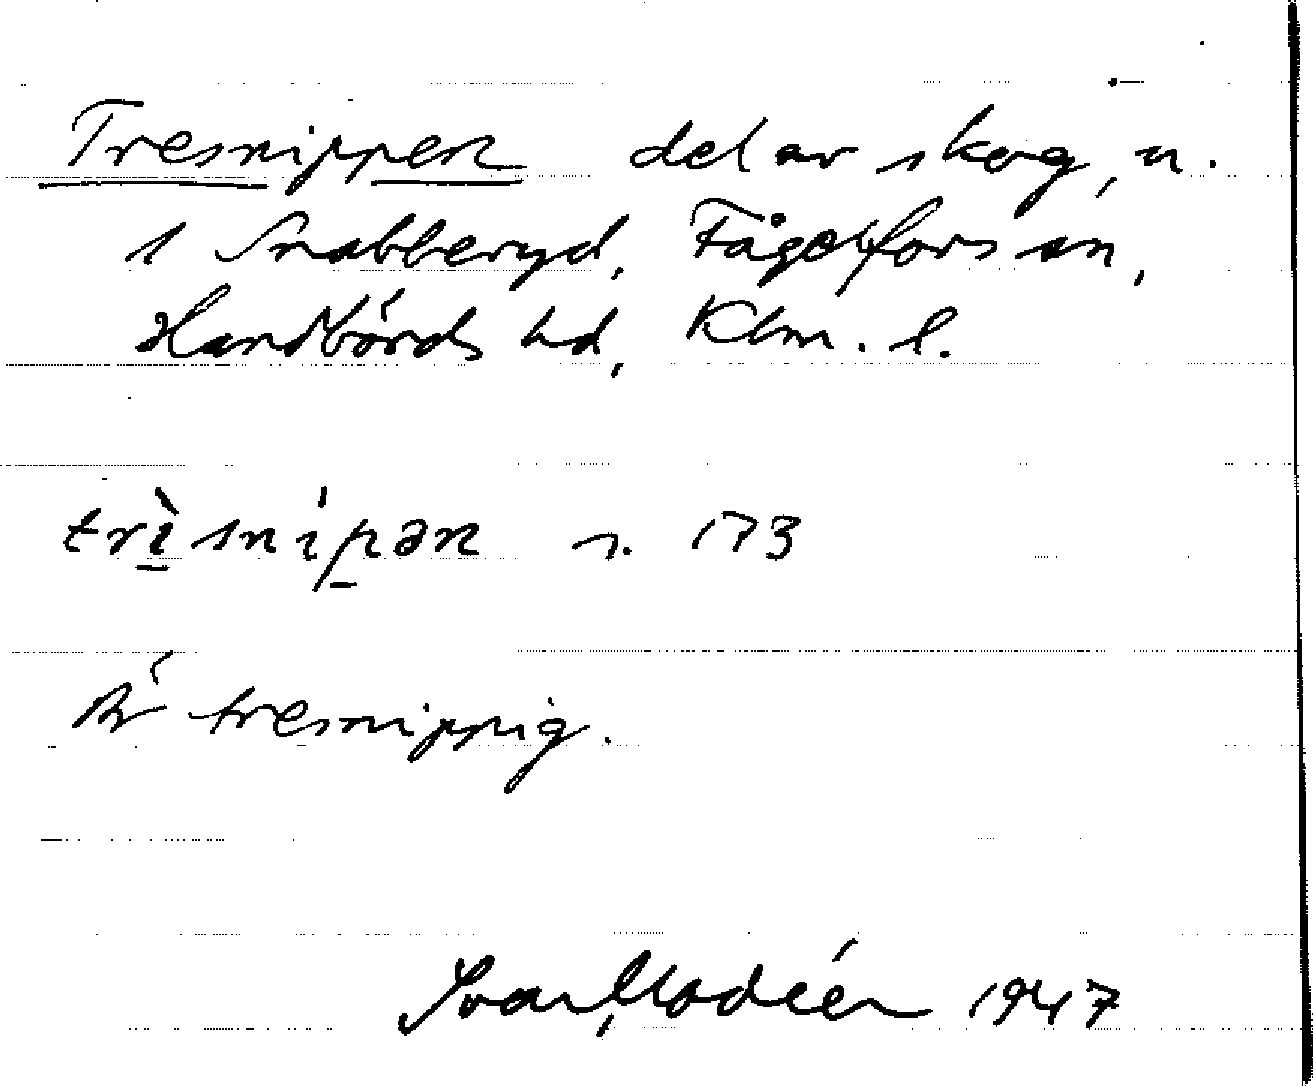 Tresnippen del av skog, u.
1 Snabberyd, Fågelfors sn,
Handbörds hd, Klm. l.
trìsnípən s. 173
Är tresnippig.
Ivar Modéer 1947